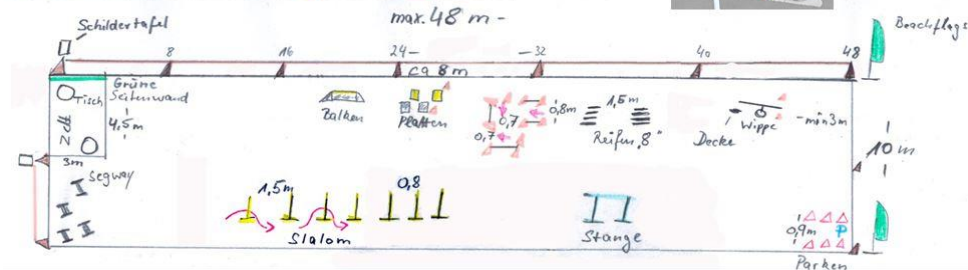 max. 48 m -
Schildertafel
Beachflags
8
16
24-
-32
40
48
ca 8m
Grüne
Seitenwand
Tisch
Zelt
4,5m
3m
Balken
Platten
0,7
0,8m
0,7
1,5m
Reifen "8"
Decke
Wippe
-min 3m
10m
Segway
1,5m
0,8
Slalom
Stange
0,9m
P
Parken